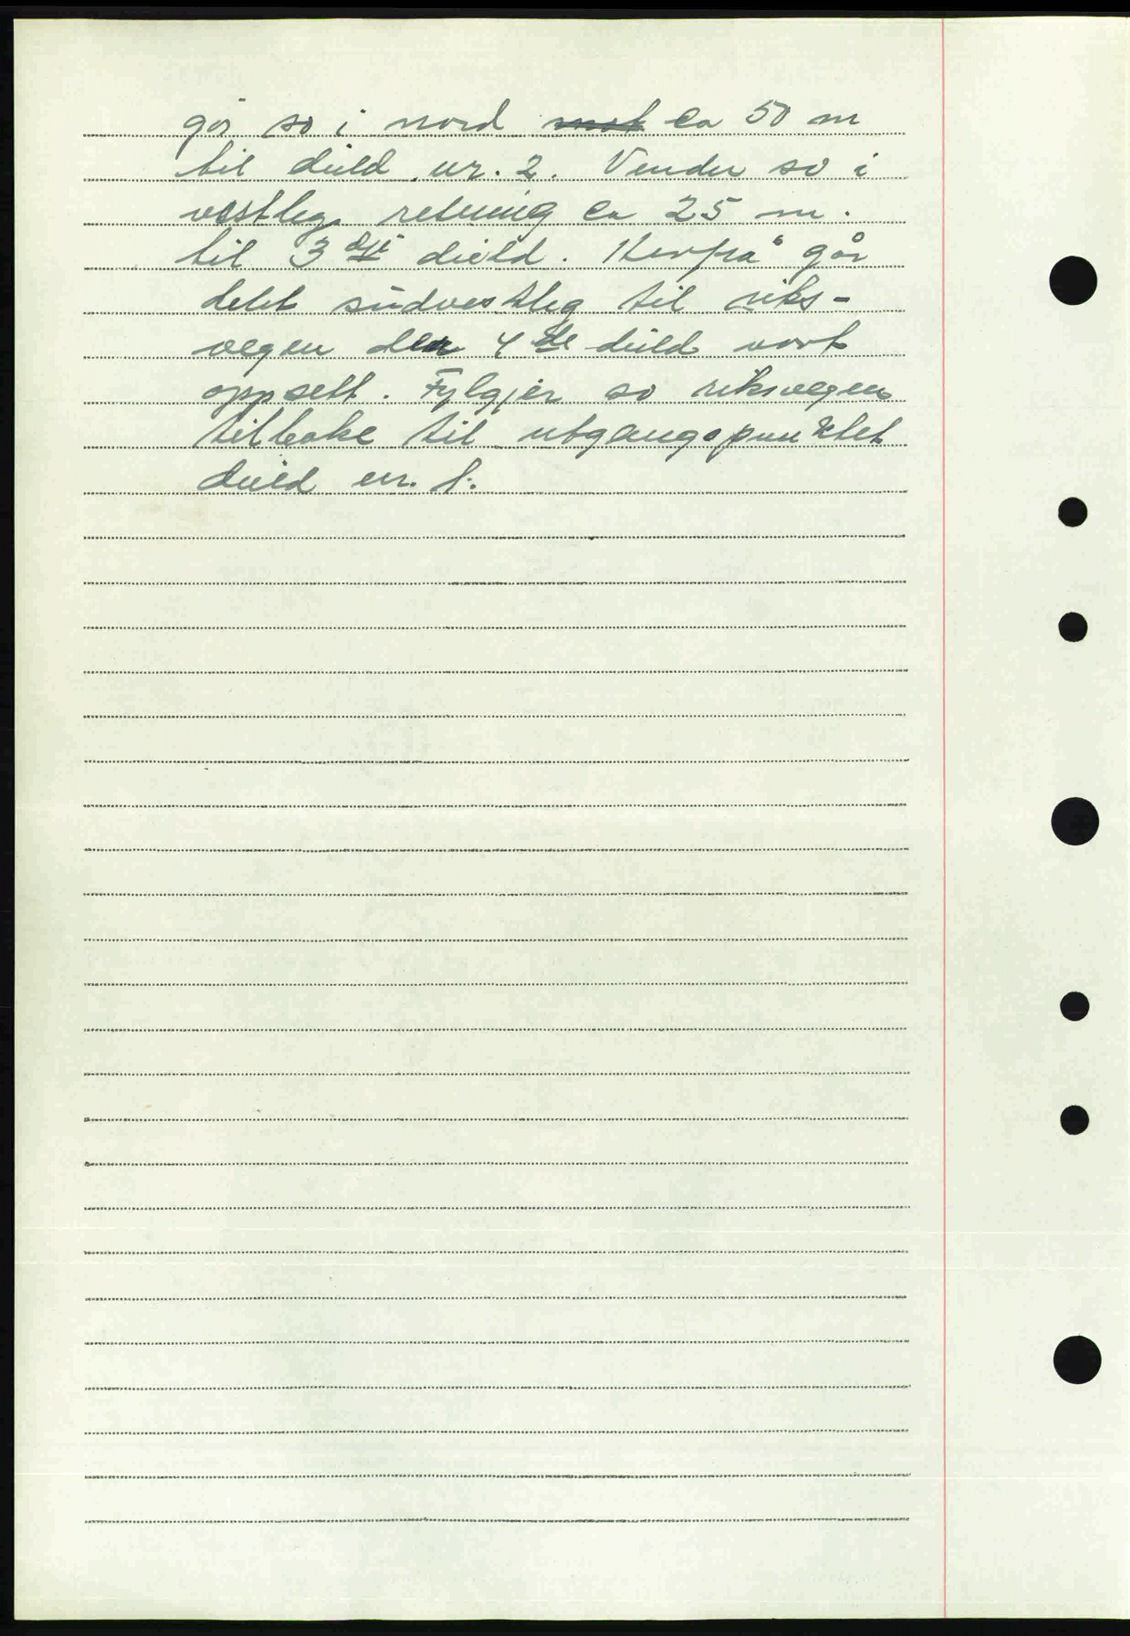 går so i nord ca 50 m
til deild nr. 2. Vender so i
vestleg retning ca 25 m.
til 3dje deild. Herfrå går
delet südvestleg til riks-
vegen der 4de deild vart
oppsett. Fylgjer so riksvegen
tilbake til utgangspunktet
deild nr. 1.